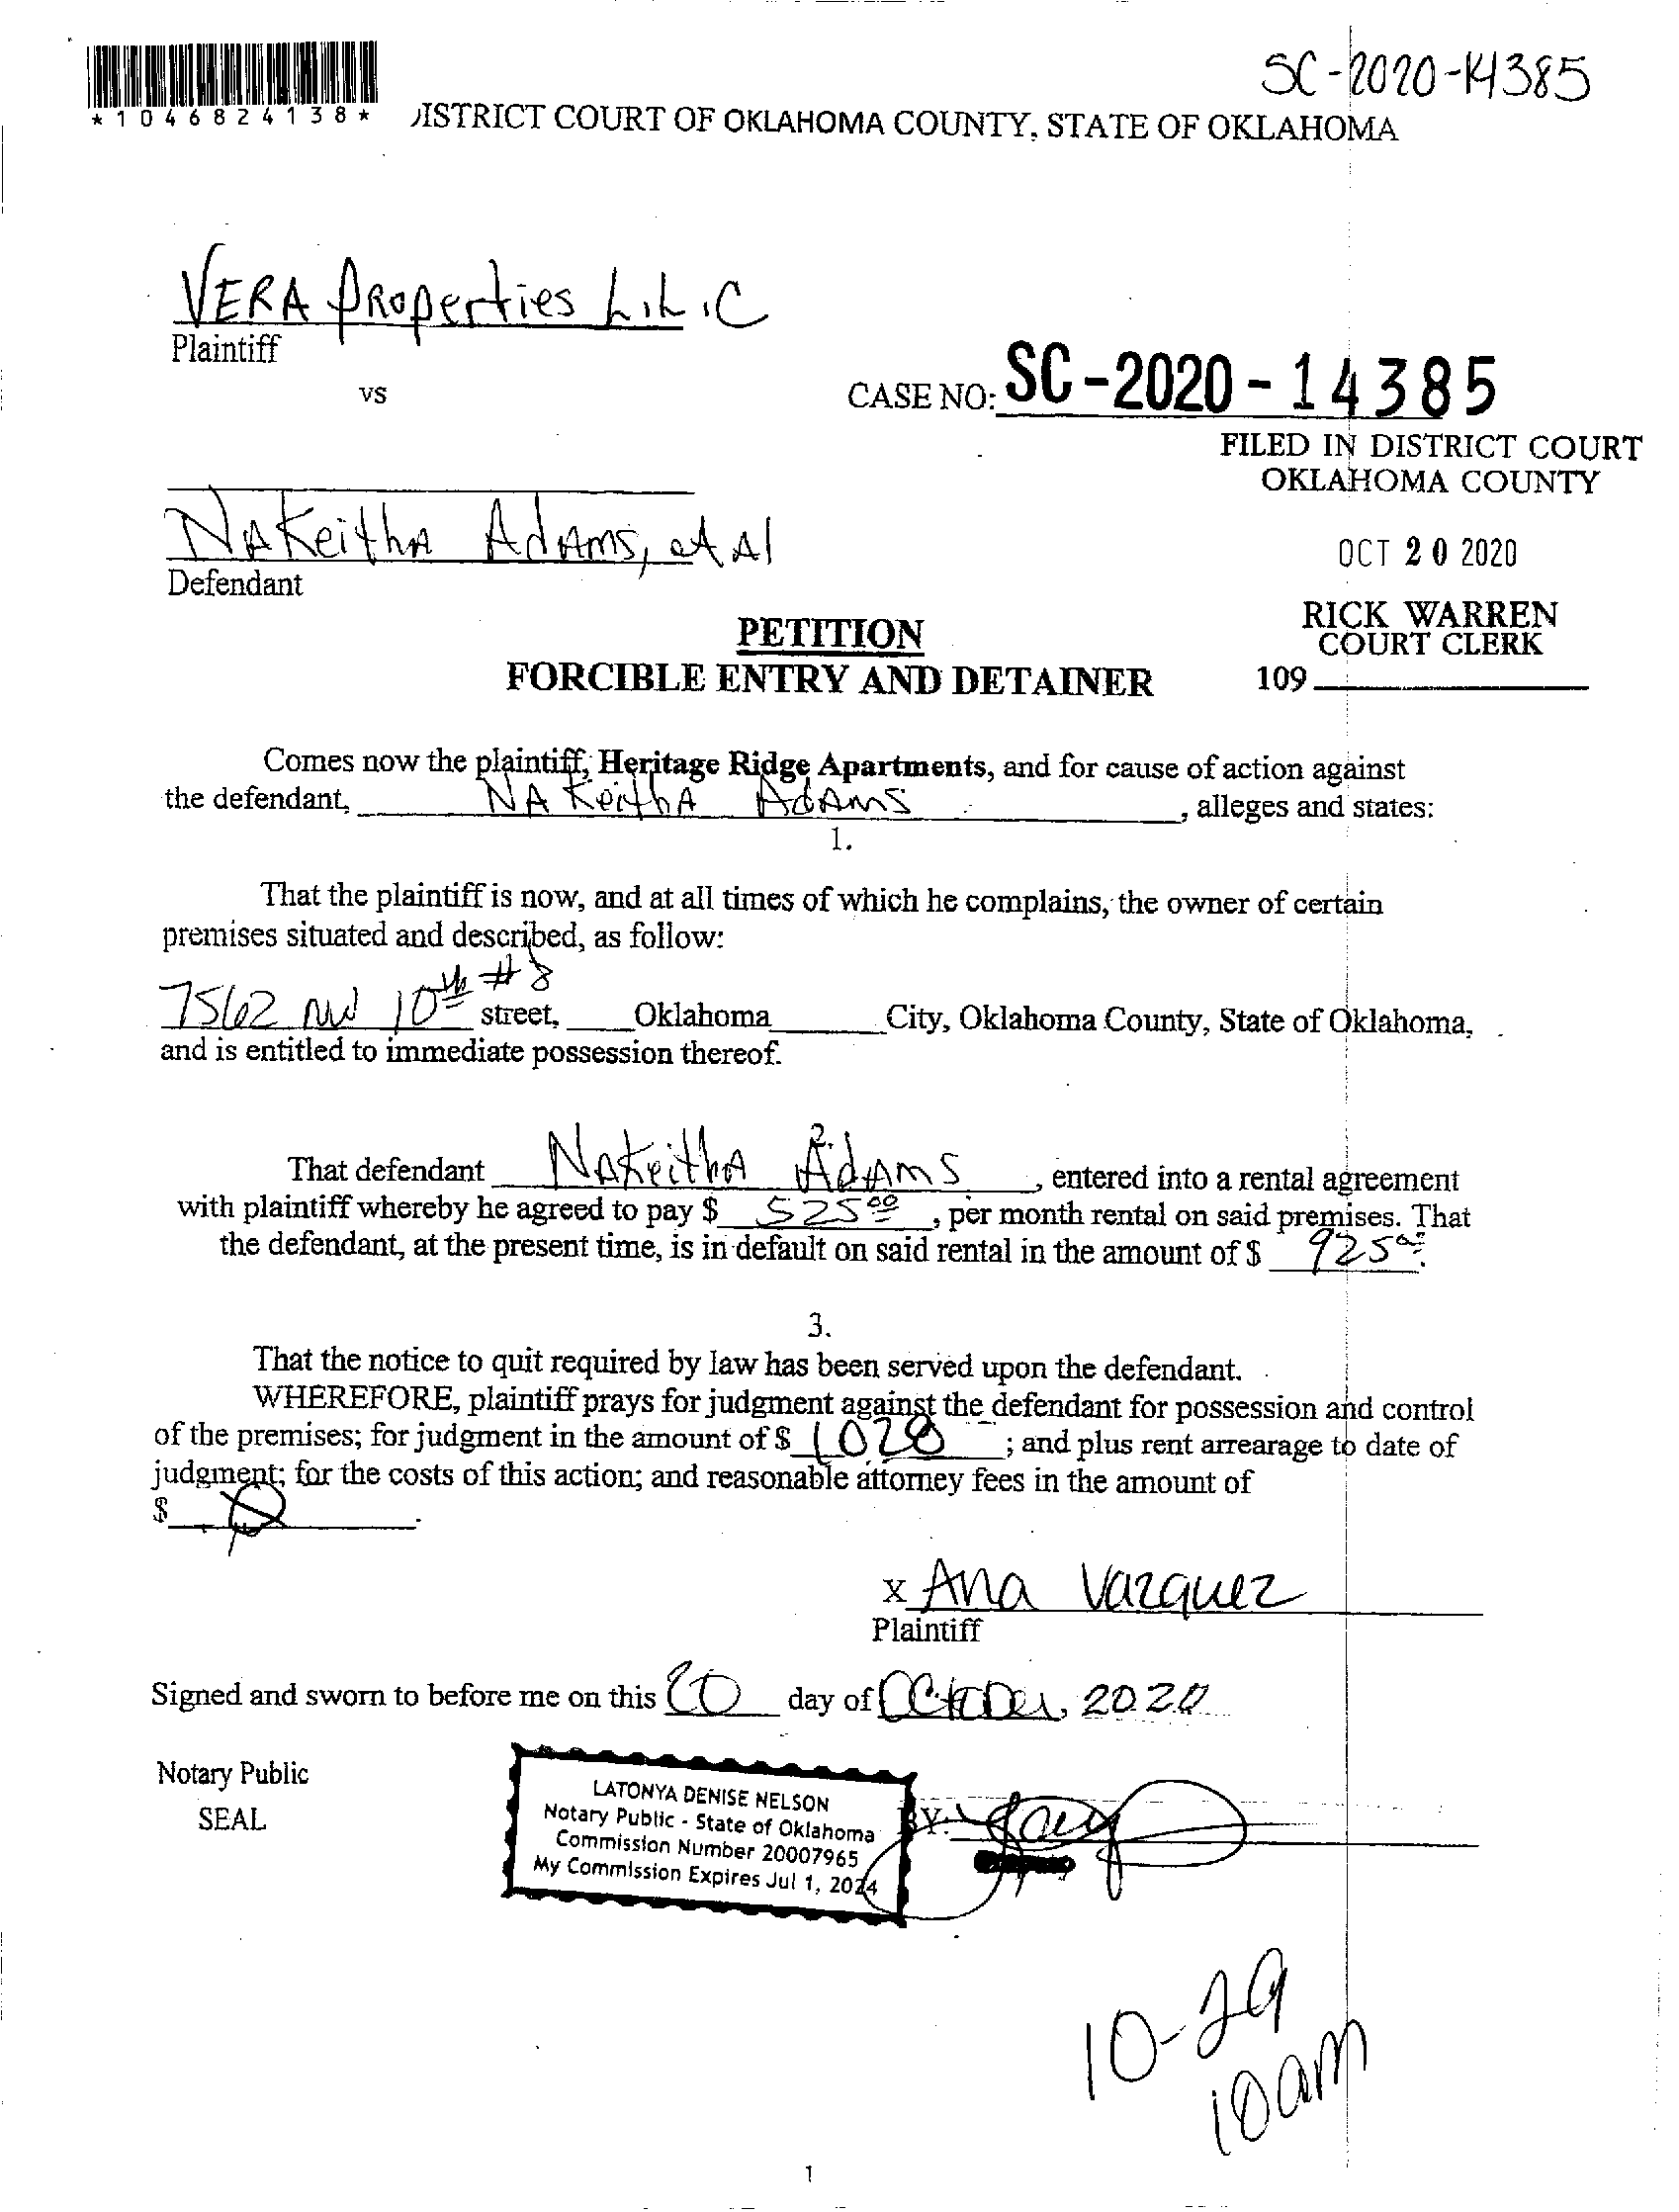 SC-2020-14385
*1046824138*
DISTRICT COURT OF OKLAHOMA COUNTY, STATE OF OKLAHOMA
VERA Properties L.L.C
Plaintiff
vs
CASE NO: SC-2020-14385
FILED IN DISTRICT COURT
OKLAHOMA COUNTY
NaKeitha Adams, et Al
Defendant
OCT 20 2020
RICK WARREN
COURT CLERK
109
PETITION
FORCIBLE ENTRY AND DETAINER
Comes now the plaintiff, Heritage Ridge Apartments, and for cause of action against
the defendant, NAKeithA AdAms, alleges and states:
1.
That the plaintiff is now, and at all times of which he complains, the owner of certain
premises situated and described, as follow:
7562 NW 10th #8 street, Oklahoma City, Oklahoma County, State of Oklahoma,
and is entitled to immediate possession thereof.
2.
That defendant NaKeithA AdAms, entered into a rental agreement
with plaintiff whereby he agreed to pay $ 525 00, per month rental on said premises. That
the defendant, at the present time, is in default on said rental in the amount of $ 925 00.
3.
That the notice to quit required by law has been served upon the defendant.
WHEREFORE, plaintiff prays for judgment against the defendant for possession and control
of the premises; for judgment in the amount of $ 1028 ; and plus rent arrearage to date of
judgment; for the costs of this action; and reasonable attorney fees in the amount of
$ .
x Ana Vazquez
Plaintiff
Signed and sworn to before me on this 20 day of October, 2020
Notary Public
SEAL
LATONYA DENISE NELSON
Notary Public - State of Oklahoma
Commission Number 20007965
My Commission Expires Jul 1, 2024
BY:
10-29
10am
1